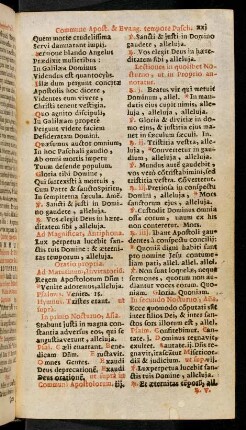 Commune Apost. & Evang. tempore Pasch. xxj
Quem morte crudelissima
Servi damnarant impij.
Sermone blando Angelus
Prædixit mulieribus:
In Galilæa Dominus
Videndus est quantocyùs.
Illæ dum pergunt concitæ
Apostolis hoc dicere,
Videntes eum vivere,
Christi tenent vestigia.
Quo agnito discipuli,
In Galilæam propere
Pergunt videre faciem
Desideratam Domini.
Quæsumus auctor omnium
In hoc Paschali gaudio,
Ab omni mortis impetu
Tuum defende populum.
Gloria tibi Domine,
Qui surrexisti à mortuis,
Cum Patre & sancto Spiritu,
In sempiterna sæcula. Amē.
℣. Sancti & justi in Domino
gaudete, alleluja.
℟. Vos elegit Deus in hæreditatem
sibi, alleluja.
Ad Magnificat, Antiphona.
Lux perpetua lucebit sanctis
tuis Domine: & æternitas
temporum, alleluja.
Oratio propria.
Ad Matutinum, Invitatorium.
Regem Apostolorum Dñm:
Venite adoremus, alleluja.
Psalm. Venite.
Hymnus. Tristes erant. ut
supra.
In primo Nocturno, Aña.
Stabunt justi in magna constantia
adversus eos, qui se
angustiaverunt, alleluja.
Psal. Cæli enarrant. Benedicam
Dñm. Eructavit.
Omnes Gentes. Exaudi
Deus deprecationē. Exaudi
Deus orationē, ut supra in
Communi Apostolorum. iij.
℣. Sancti & justi in Domino
gaudete, alleluja.
℟. Vos elegit Deus in hæreditatem
sibi, alleluja.
Lectiones in quolibet Nocturno,
ut in Proprio annotatur.
℟. j. Beatus vir qui metuit
Dominum, allel. * In mandatis
ejus cupit nimis, alleluja,
alleluja, alleluja.
℣. Gloria & divitiæ in domo
ejus: & justitia ejus manet
in sæculum sæculi.
℟. ij. Tristitia vestra, alleluja,
* Convertetur in gaudium,
alleluja, alleluja.
℣. Mundus autē gaudebit:
vos verò contristabimini, sed
tristitia vestra Convertetur.
℟. iij. Pretiosa in conspectu
Domini, alleluja, * Mors
sanctorum ejus, alleluja.
℣. Custodit Dominus omnia
ossa eorum, unum ex his
non conteretur. Mors.
℟. iiij. Ibant Apostoli gaudentes
à conspectu concilij:
* Quoniā digni habiti sunt
pro nomine Jesu contumeliam
pati, allel. allel. allel.
℣. Non sunt loquelæ, neque
sermones, quorum non audiantur
voces eorum. Quoniam.
Gloria. Quoniam.
In secundo Nocturno, Aña.
Ecce quomodo cōputati sūt
inter filios Dei, & inter sanctos
sors illorum est, allel.
Psalm. Confitebimur. Dñs
regnavit, irascātur.
℣. Lux perpetua lucebit sanctis
tuis Domine, alleluja.
℟. Et æternitas tēporū, all.